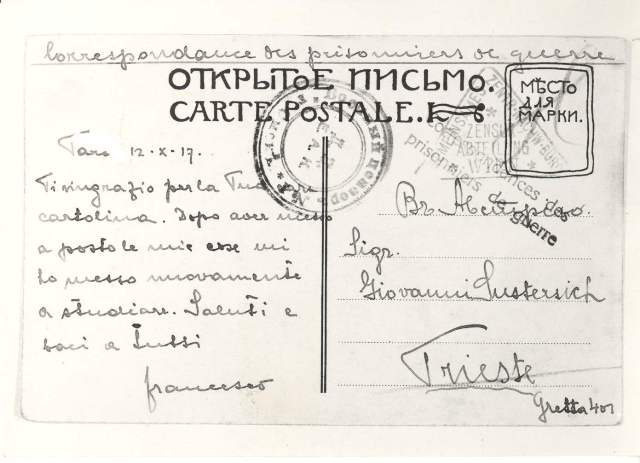 Correspondance des prisonniers de guerre
ОТКРЫТОЕ ПИСЬМО.
CARTE POSTALE.
МѢСТО
ДЛЯ
МАРКИ.
12-X-17.
Ti ringrazio per la Tua
cartolina. Dopo aver messo
a posto le mie cose mi
ho messo nuovamente
a studiare. Saluti e
baci a Tutti
francesco
Въ Австрію.
Sigr.
Giovanni Sustersich
Trieste
Gretta 401
prisonniers
de guerre